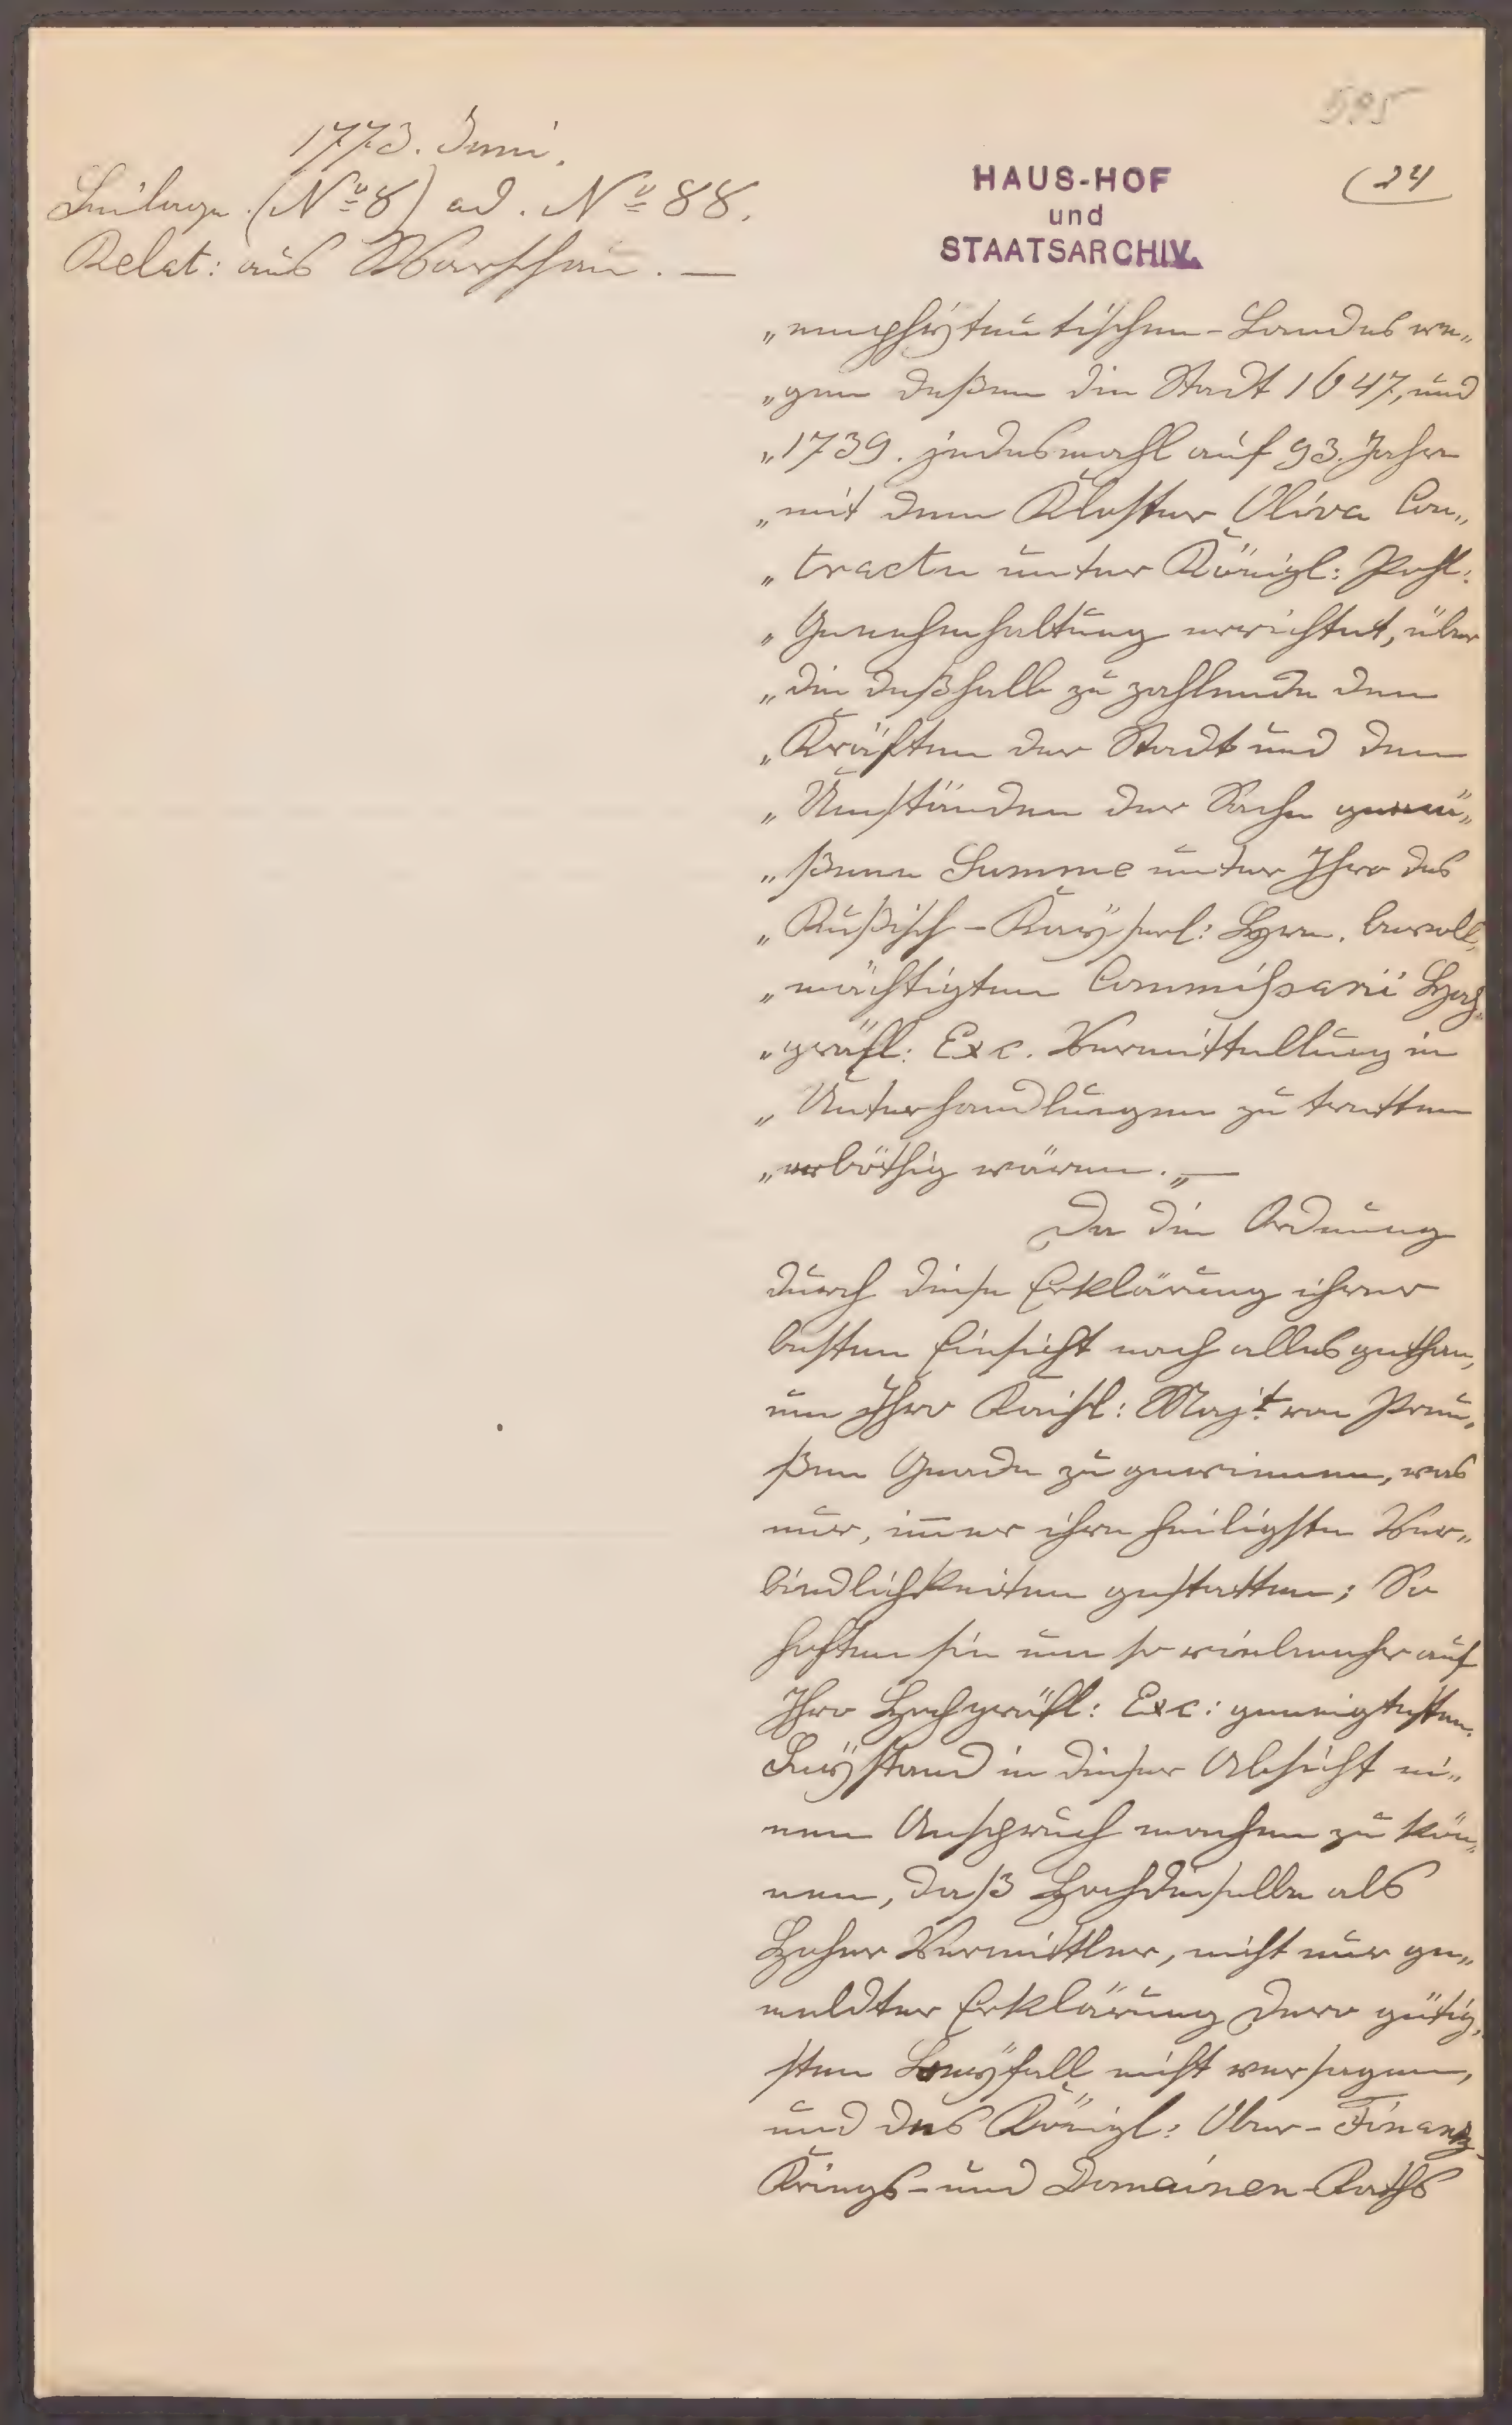 595
1773. Juni.
Beilage. (No 8) ad. No 88.
Relat: aus Warschau. —
HAUS-HOF
und
STAATSARCHIV.
(24
„emphÿteutischen-Landes we„
„gen deßen die Stadt 1647, und
„1739. jedesmahl auf 93. Jahre
„mit dem Kloster Oliva Con„
„tracte unter Königl: Pohl:
„Genehmhaltung errichtet, über
„die deßhalb zu zahlende den
„Kräften der Stadt und den
„Umständen der Sache gemä„
„ßene Summe unter Ihro des
„Rußisch-Kaÿserl: Hrn. bevoll„
„mächtigten Commißarii Hoch„
„gräfl: Exc. Vermittellung in
„Unterhandlungen zu tretten
„erböthig wären.„—
Da die Ordnung
durch diese Erklärung ihrer
besten Einsicht nach alles gethan,
um Ihro Königl: Majt von Preu„
ßen Gnade zu gewinnen, was
nur, im̅er ihre heiligste Ver„
bindlichkeiten gestatten; So
hoften sie um so vielmehr auf
Ihro Hochgräfl: Exc: geneigtesten
Beÿstand in dieser Absicht ei„
nen Anspruch machen zu kön„
nen, daß Hochdieselbe als
Hoher Vermittler, nicht nur ge„
meldter Erklärung Dero gütig„
sten Beÿfall nicht versagen,
und des Königl: Ober-Finanz-
Kriegs-und Domainen-Raths